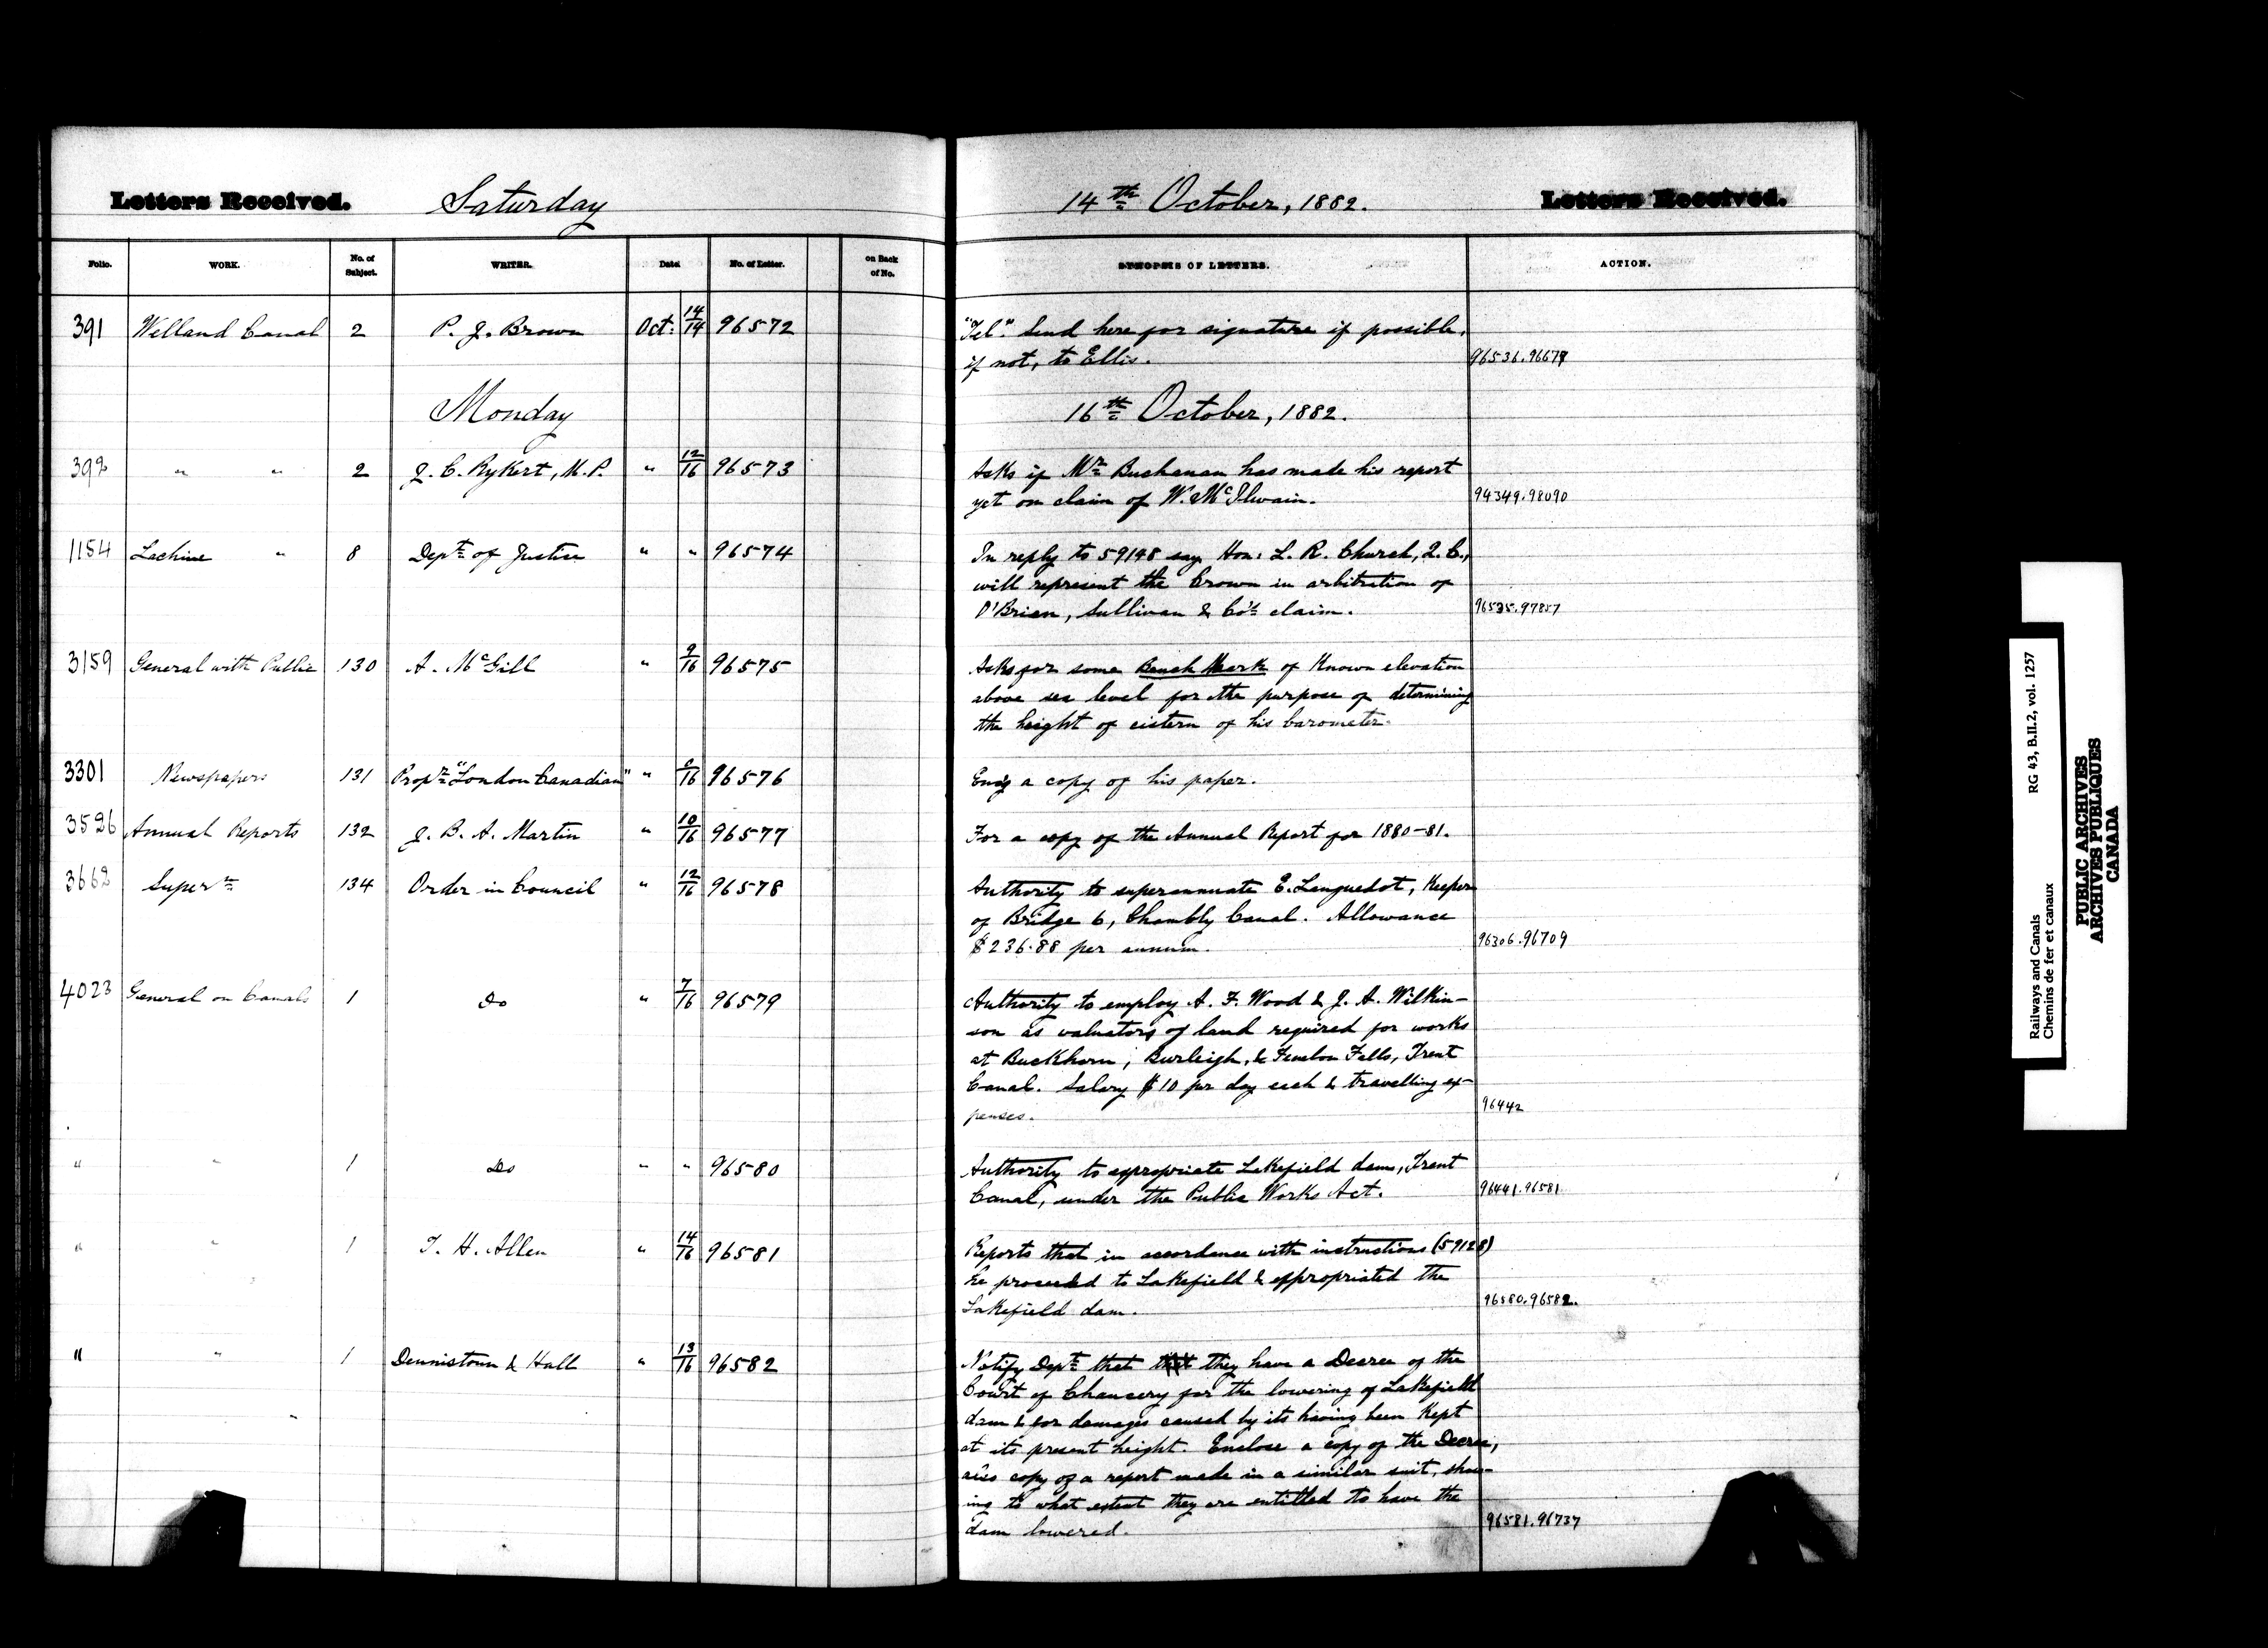 Letters Received. Saturday 14th October, 1882. Letters Received.
Folio. WORK. No. of Subject. WRITER. Date. No. of Letter. on Back of No. SYNOPSIS OF LETTERS. ACTION.
391 Welland Canal 2 P. J. Brown Oct. 14/14 96572 "Tel". Send here for signature if possible,
if not, to Ellis. 96536.96679
Monday 16th October, 1882.
392 " " 2 J. C. Rykert, M.P. " 12/16 96573 Asks if Mr Buchanan has made his report
yet on claim of W. McIlwain. 94349.98090
1154 Lachine " 8 Dept of Justice " " 96574 In reply to 59148 say Hon: L. R. Church, Q.C.,
will represent the Crown in arbitration of
O'Brien, Sullivan & Co's claim. 96535.97857
3159 General with Public 130 A. McGill " 9/16 96575 Asks for some Bench Mark of known elevation
above sea level for the purpose of determining
the height of cistern of his barometer.
3301 Newspapers 131 Propr "London Canadian" " /16 96576 Encg a copy of his paper.
3526 Annual Reports 132 J. B. A. Martin " 10/16 96577 For a copy of the Annual Report for 1880-81.
3662 Supern 134 Order in Council " 12/16 96578 Authority to superannuate E. Languedot, Keeper
of Bridge 6, Chambly Canal. Allowance
$236.88 per annum. 96306.96709
4023 General on Canals 1 Do " 7/16 96579 Authority to employ A. F. Wood & J. A. Wilkin-
son as valuators of land required for works
at Buckhorn, Burleigh, & Fenelon Falls, Trent
Canal. Salary $10 per day each & travelling ex-
penses. 96442
" " 1 Do " " 96580 Authority to appropriate Lakefield dams, Trent
Canal, under the Public Works Act. 96441.96581
" " 1 T. H. Allen " 14/16 96581 Reports that in accordance with instructions (59128)
he proceeded to Lakefield & appropriated the
Lakefield dam. 96580.96582.
" " 1 Dennistoun & Hall " 13/16 96582 Notify Dept that they have a Decree of the
Court of Chancery for the lowering of Lakefield
dam & for damages caused by its having been kept
at its present height. Enclose a copy of the Decree,
also copy of a report made in a similar suit, show-
ing to what extent they are entitled to have the
dam lowered. 96581.96737
Railways and Canals RG 43, B.II.2, vol. 1257
Chemins de fer et canaux
PUBLIC ARCHIVES
ARCHIVES PUBLIQUES
CANADA